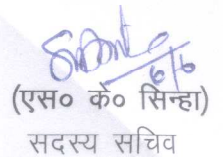 6/6
(एस० के० सिन्हा)
सदस्य सचिव